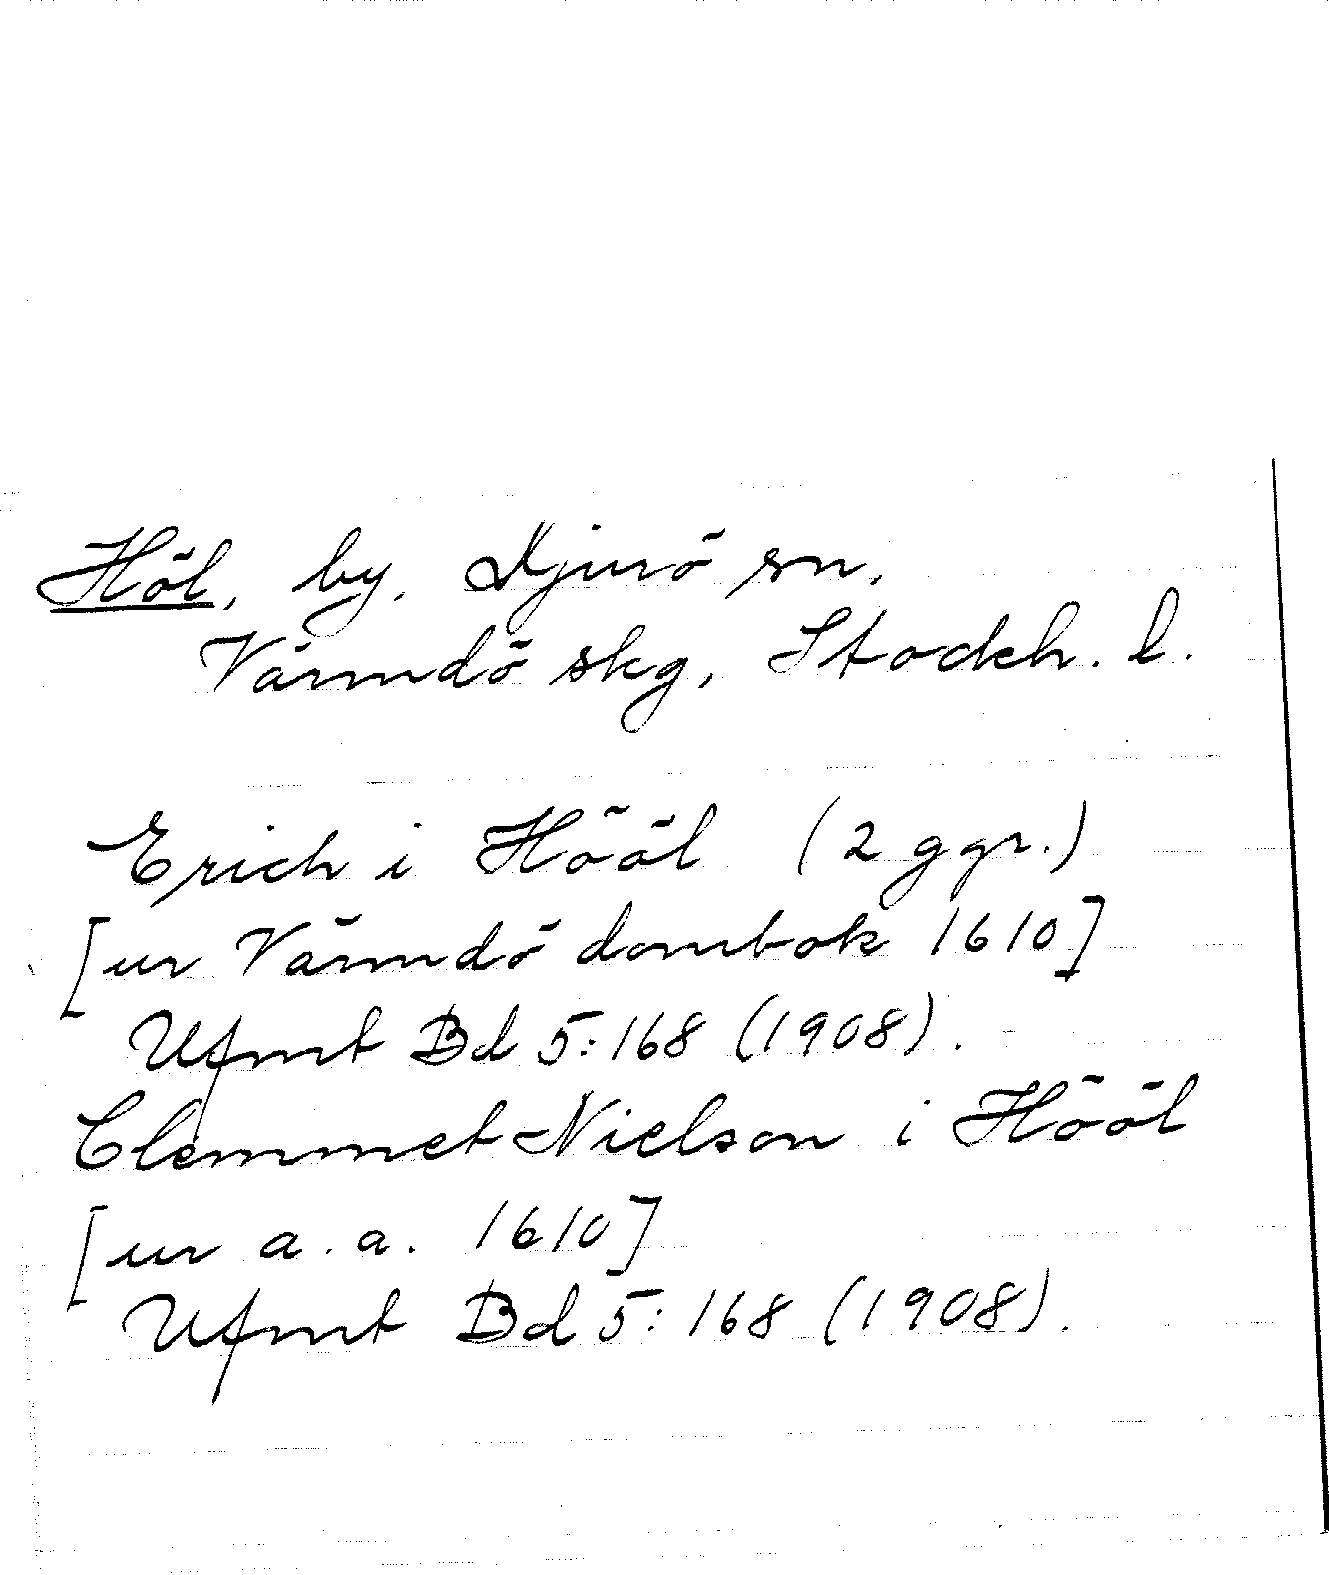 Höl, by, Djurö sn.
Värmdö skg, Stockh. l.
Erich i Hööl (2 ggr.)
[ur Värmdö dombok 1610]
Ufmt Bd 5:168 (1908).
Clemmet Nielson i Hööl
[ur a.a. 1610]
Ufmt Bd 5:168 (1908).